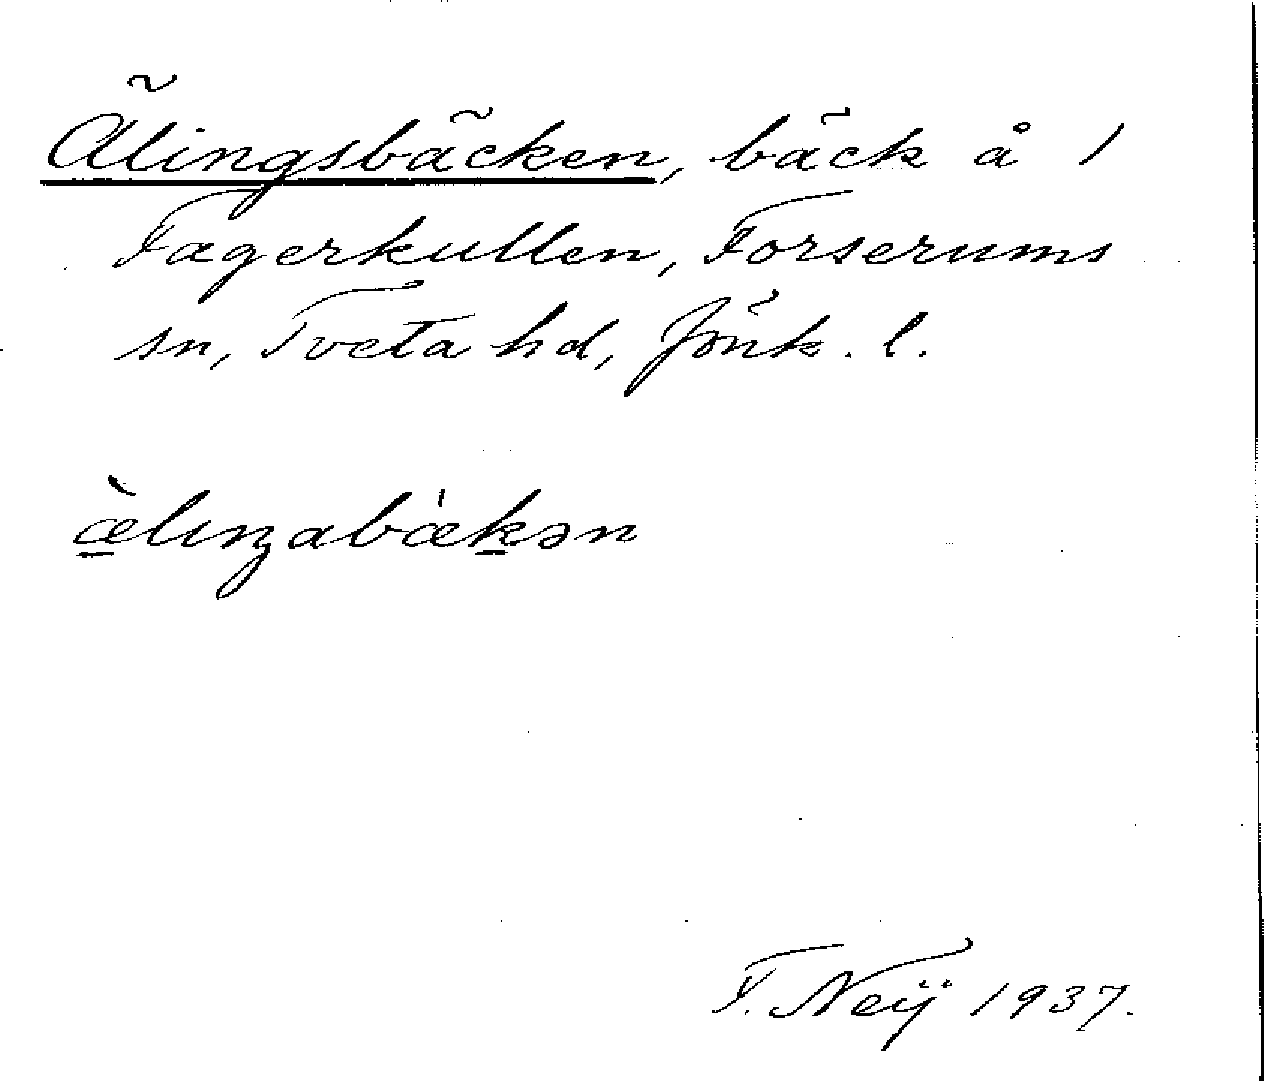 Älingsbäcken, bäck å 1
Fagerkullen, Forserums
sn, Tveta hd, Jönk. l.
æ̲̀lıŋabæ̍k̲ən
F. Neij 1937.